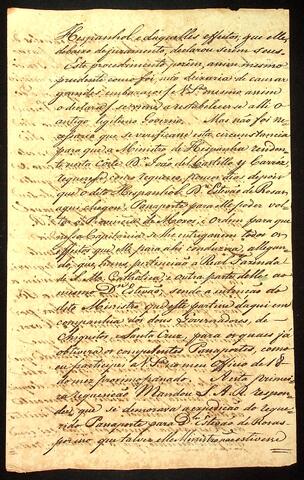 Hespanhol e daquelles effeitos, que elle
debaixo de juramento, declarou serem seus.
Este procedimento porém, assim mesmo
prudente como foi não deixaria de causar
grande embaraço se V. S.ª mesmo assim
o declara se viesse a restabelecer alli o
antigo legitimo Governo. Mas não foi ne-
cessario que se verificasse esta circunstancia
para que o Ministro de Hespanha residen-
te nesta Corte D.ⁿ João del Castillo y Carroz
requeresse, como requereo, poucos dias depois
que o dito Hespanhol D.ⁿ Estevão de Rosas
aqui chegou, Passaporte para elle poder vol-
tar á Provincia de Moxos, e ordem para que
nessa Capitania se lhe entregassem todos os
effeitos que elle para ahi conduzira allegan-
do, que huns pertencião á Real Fazenda
de S. M. Catholica, e outra parte delles ao
mesmo D.ⁿ Estevão, sendo a intenção do
dito Ministro que este partisse daqui em
companhia dos dous Governadores, de
Chiquitos, e Santa Cruz, para os quaes já
obtivera os competentes Passaportes, como
eu participei a V. S.ª no meu officio de 18
do mez proximo passado. A esta primei-
ra requesição Mandou S. A. R. respon-
der que se demorava a expedição do reque-
rido Passaporte para D.ⁿ Estevão de Rosas
por isso que talvez elle Ministro não estivesse